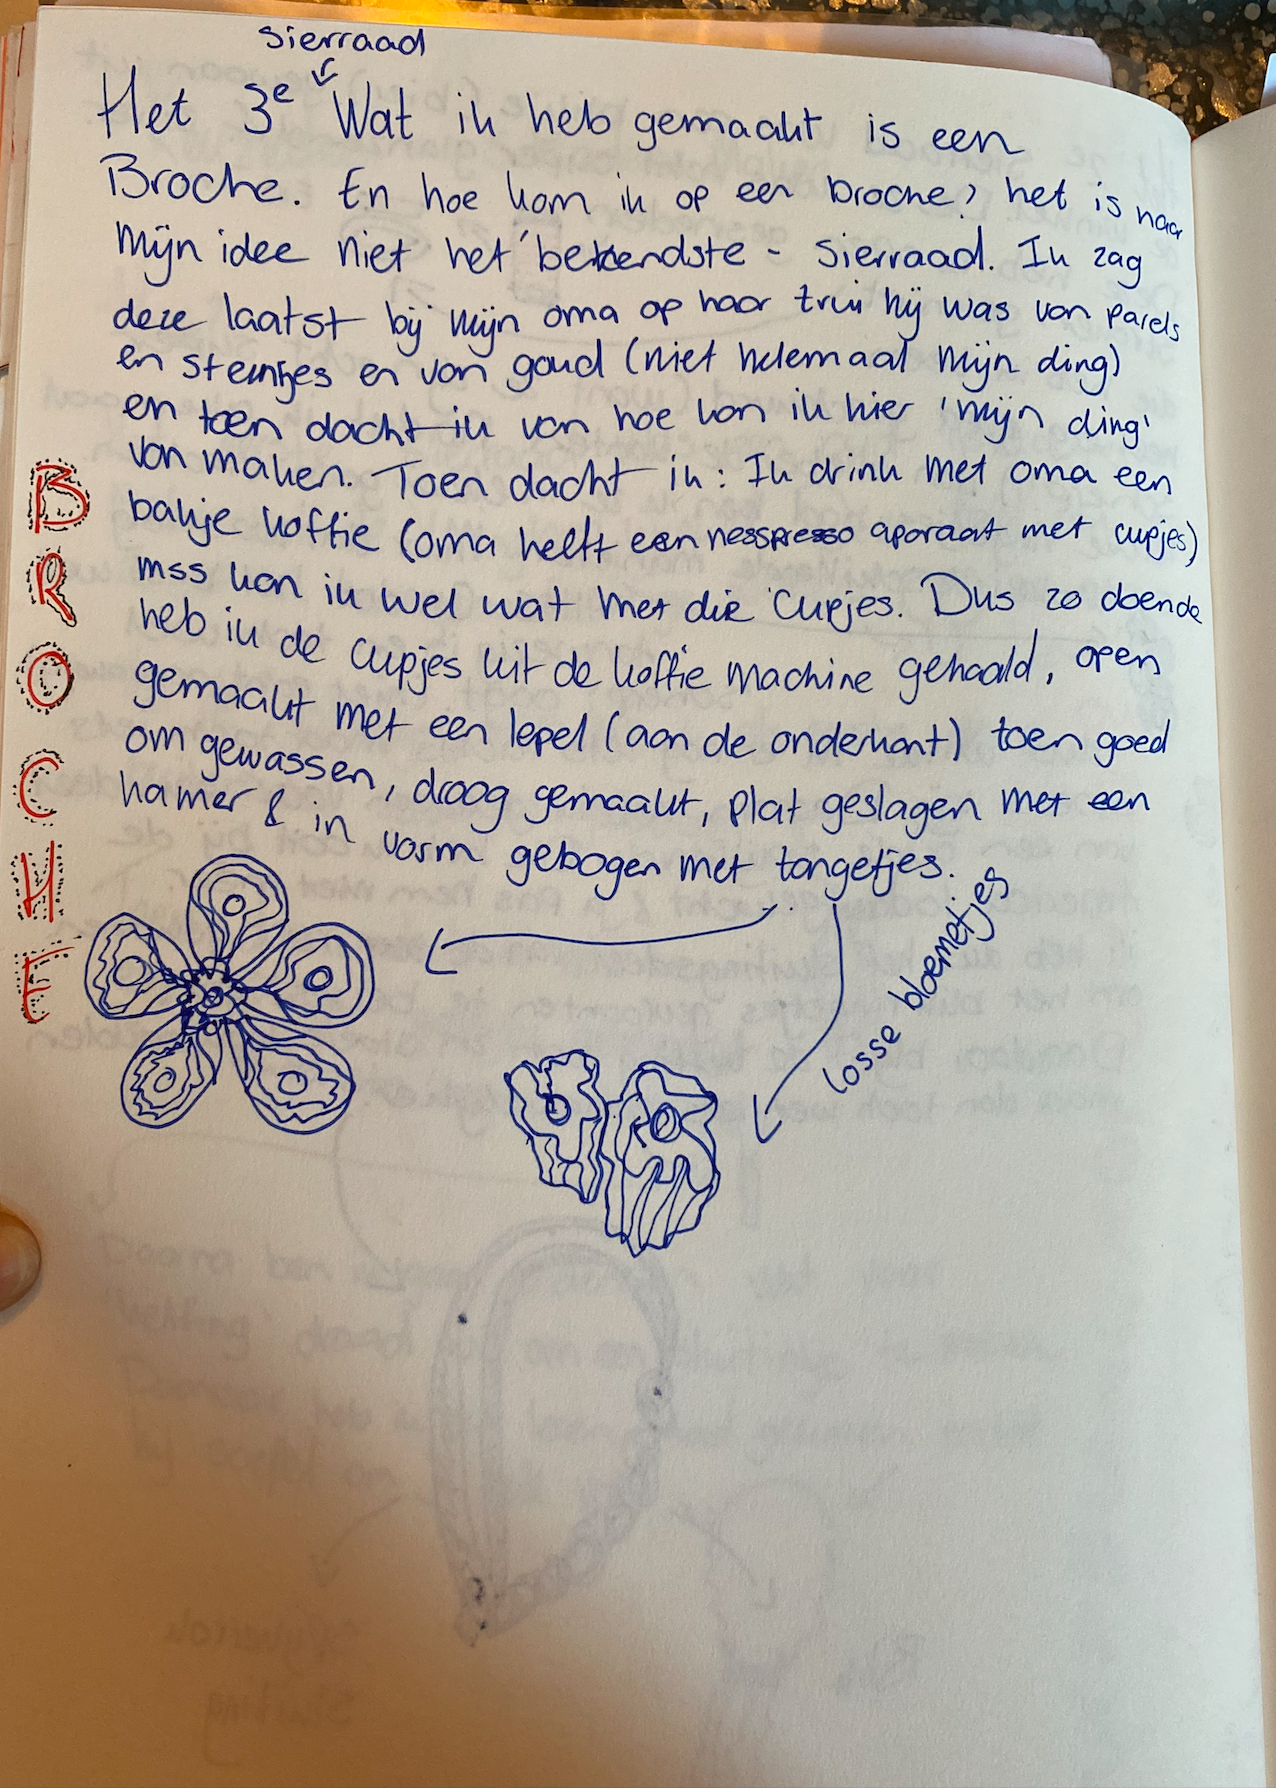 sierraad
Het 3e Wat ik heb gemaakt is een
Broche. En hoe kom ik op een broche? het is naar
mijn idee niet het 'bekendste - sierraad. Ik zag
deze laatst bij mijn oma op haar trui hij was van parels
en steentjes en van goud (niet helemaal mijn ding)
en toen dacht ik van hoe kan ik hier 'mijn ding'
van maken. Toen dacht ik: Ik drink met oma een
bakje koffie (oma heeft een nesspresso aparaat met cupjes)
mss kan ik wel wat met die cupjes. Dus zo doende
heb ik de cupjes uit de koffie machine gehaald, open
gemaakt met een lepel (aan de onderkant) toen goed
om gewassen, droog gemaakt, plat geslagen met een
hamer & in vorm gebogen met tangetjes.
BROCHE
losse bloemetjes